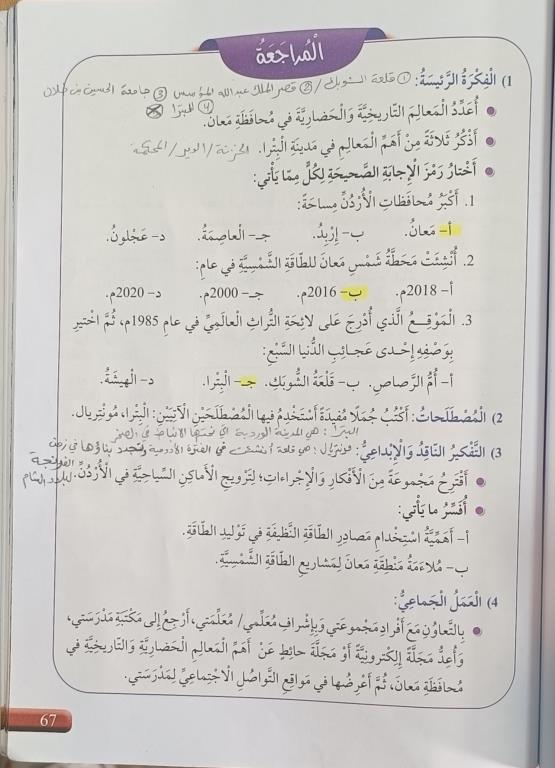 الْمُرَاجَعَةُ
1) الْفِكْرَةُ الرَّئِيسَةُ: ① قلعة الشوبك / ② قصر الملك عبدالله المؤسس ③ جامعة الحسين بن طلال
④ البترا
أُعَدِّدُ الْمَعَالِمَ التَّارِيخِيَّةَ وَالْحَضَارِيَّةَ فِي مُحَافَظَةِ مَعَانَ.
أَذْكُرُ ثَلَاثَةً مِنْ أَهَمِّ الْمَعَالِمِ فِي مَدِينَةِ الْبَتْرَا. الخزنة / الدير / المحكمة
أَخْتَارُ رَمْزَ الْإِجَابَةِ الصَّحِيحَةِ لِكُلٍّ مِمَّا يَأْتِي:
1. أَكْبَرُ مُحَافَظَاتِ الْأُرْدُنِّ مِسَاحَةً:
أ- مَعَانُ. ب- إِرْبِدُ. جـ- الْعَاصِمَةُ. د- عَجْلُونُ.
2. أُنْشِئَتْ مَحَطَّةُ شَمْسِ مَعَانَ لِلطَّاقَةِ الشَّمْسِيَّةِ فِي عَامِ:
أ- 2018م. ب- 2016م. جـ- 2000م. د- 2020م.
3. الْمَوْقِعُ الَّذِي أُدْرِجَ عَلَى لَائِحَةِ التُّرَاثِ الْعَالَمِيِّ فِي عَامِ 1985م، ثُمَّ اخْتِيرَ
بِوَصْفِهِ إِحْدَى عَجَائِبِ الدُّنْيَا السَّبْعِ:
أ- أُمُّ الرَّصَاصِ. ب- قَلْعَةُ الشُّوبَكِ. جـ- الْبَتْرَا. د- الْهِيشَةُ.
2) الْمُصْطَلَحَاتُ: أَكْتُبُ جُمَلًا مُفِيدَةً أَسْتَخْدِمُ فِيهَا الْمُصْطَلَحَيْنِ الْآتِيَيْنِ: الْبَتْرَا، مُونْتِرِيَال.
البترا: هي المدينة الوردية التي نحتها الأنباط في الصخر
3) التَّفْكِيرُ النَّاقِدُ وَالْإِبْدَاعِيُّ: مونتريال: هو قلعة أنشئت في الفترة الأدومية وتجدد بناؤها في زمن
الفرنجة
أَقْتَرِحُ مَجْمُوعَةً مِنَ الْأَفْكَارِ وَالْإِجْرَاءَاتِ؛ لِتَرْوِيجِ الْأَمَاكِنِ السِّيَاحِيَّةِ فِي الْأُرْدُنِّ. لبلاد الشام
أُفَسِّرُ مَا يَأْتِي:
أ- أَهَمِّيَّةُ اسْتِخْدَامِ مَصَادِرِ الطَّاقَةِ النَّظِيفَةِ فِي تَوْلِيدِ الطَّاقَةِ.
ب- مُلَاءَمَةُ مَنْطِقَةِ مَعَانَ لِمَشَارِيعِ الطَّاقَةِ الشَّمْسِيَّةِ.
4) الْعَمَلُ الْجَمَاعِيُّ:
بِالتَّعَاوُنِ مَعَ أَفْرَادِ مَجْمُوعَتِي وَبِإِشْرَافِ مُعَلِّمِي/ مُعَلِّمَتِي، أَرْجِعُ إِلَى مَكْتَبَةِ مَدْرَسَتِي،
وَأُعِدُّ مَجَلَّةً إِلِكْتُرُونِيَّةً أَوْ مَجَلَّةَ حَائِطٍ عَنْ أَهَمِّ الْمَعَالِمِ الْحَضَارِيَّةِ وَالتَّارِيخِيَّةِ فِي
مُحَافَظَةِ مَعَانَ، ثُمَّ أَعْرِضُهَا فِي مَوَاقِعِ التَّوَاصُلِ الِاجْتِمَاعِيِّ لِمَدْرَسَتِي.
67